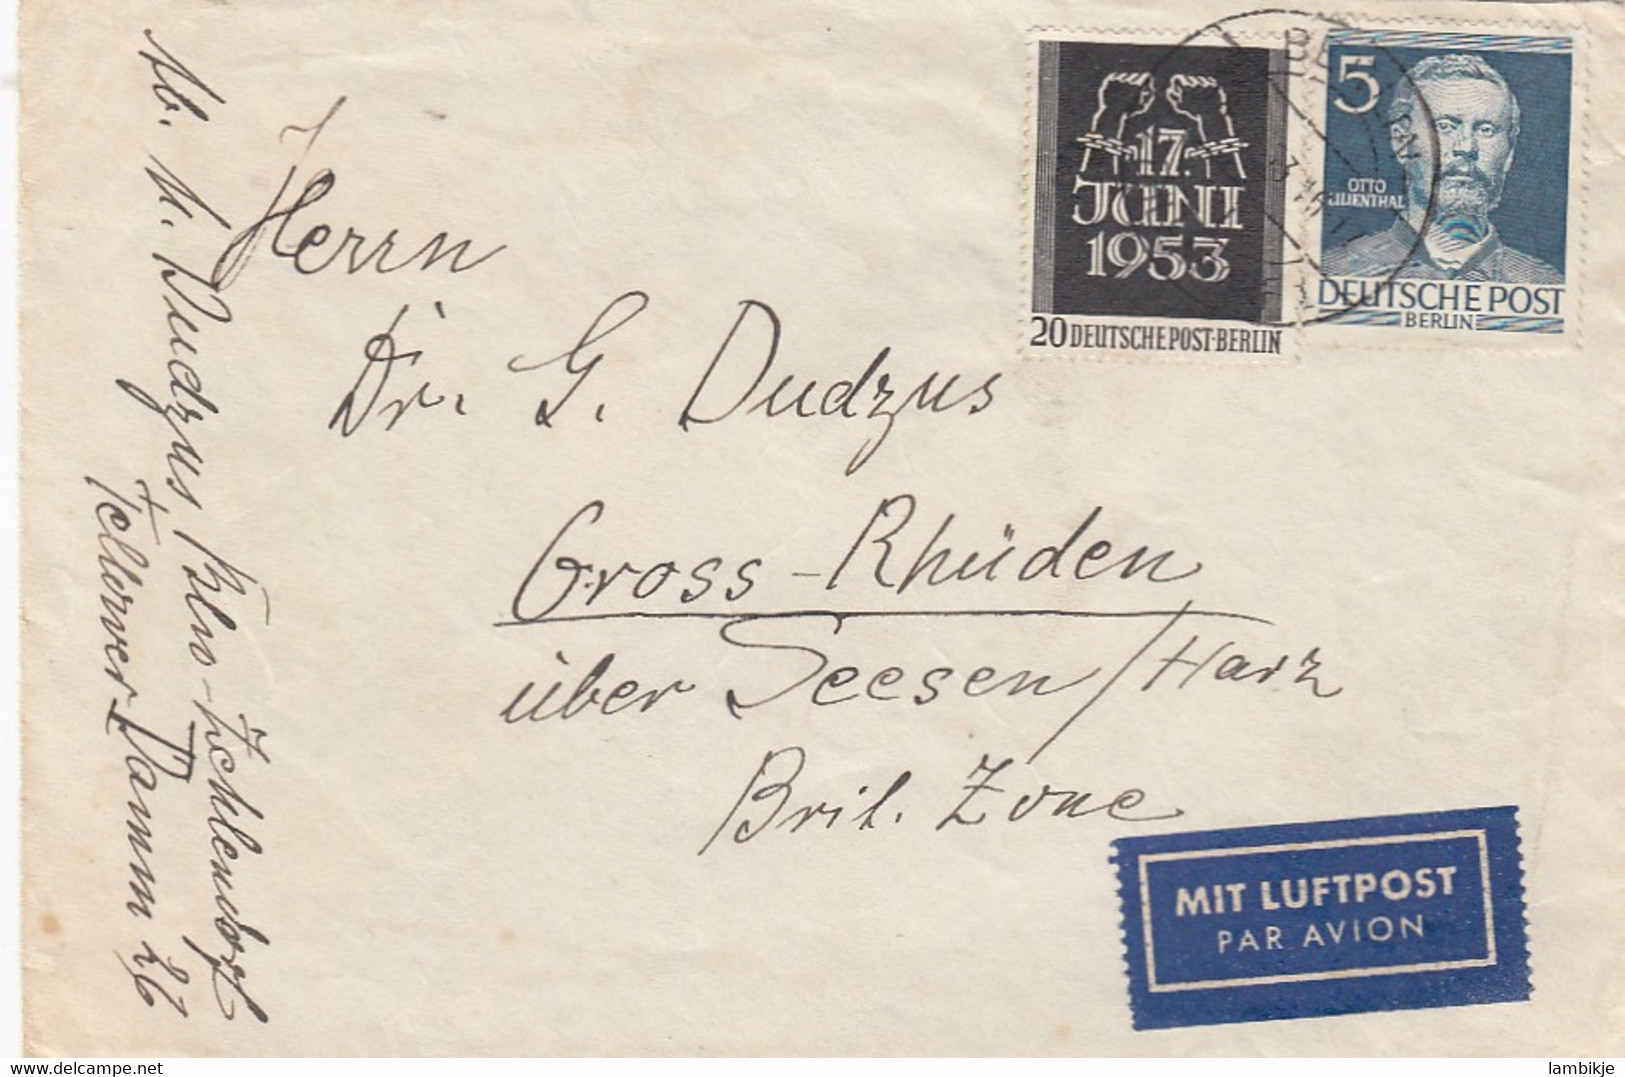 Herrn
Dr. G. Dudzus
Gross-Rhüden
über Seesen/Harz
Brit. Zone
Ab. U. Dudzus Bln-Zehlendorf
Teltower Damm 26
17.
JUNI
1953
20 DEUTSCHE POST·BERLIN
5
OTTO
LILIENTHAL
DEUTSCHE POST
BERLIN
MIT LUFTPOST
PAR AVION
delcampe.net
lambikje